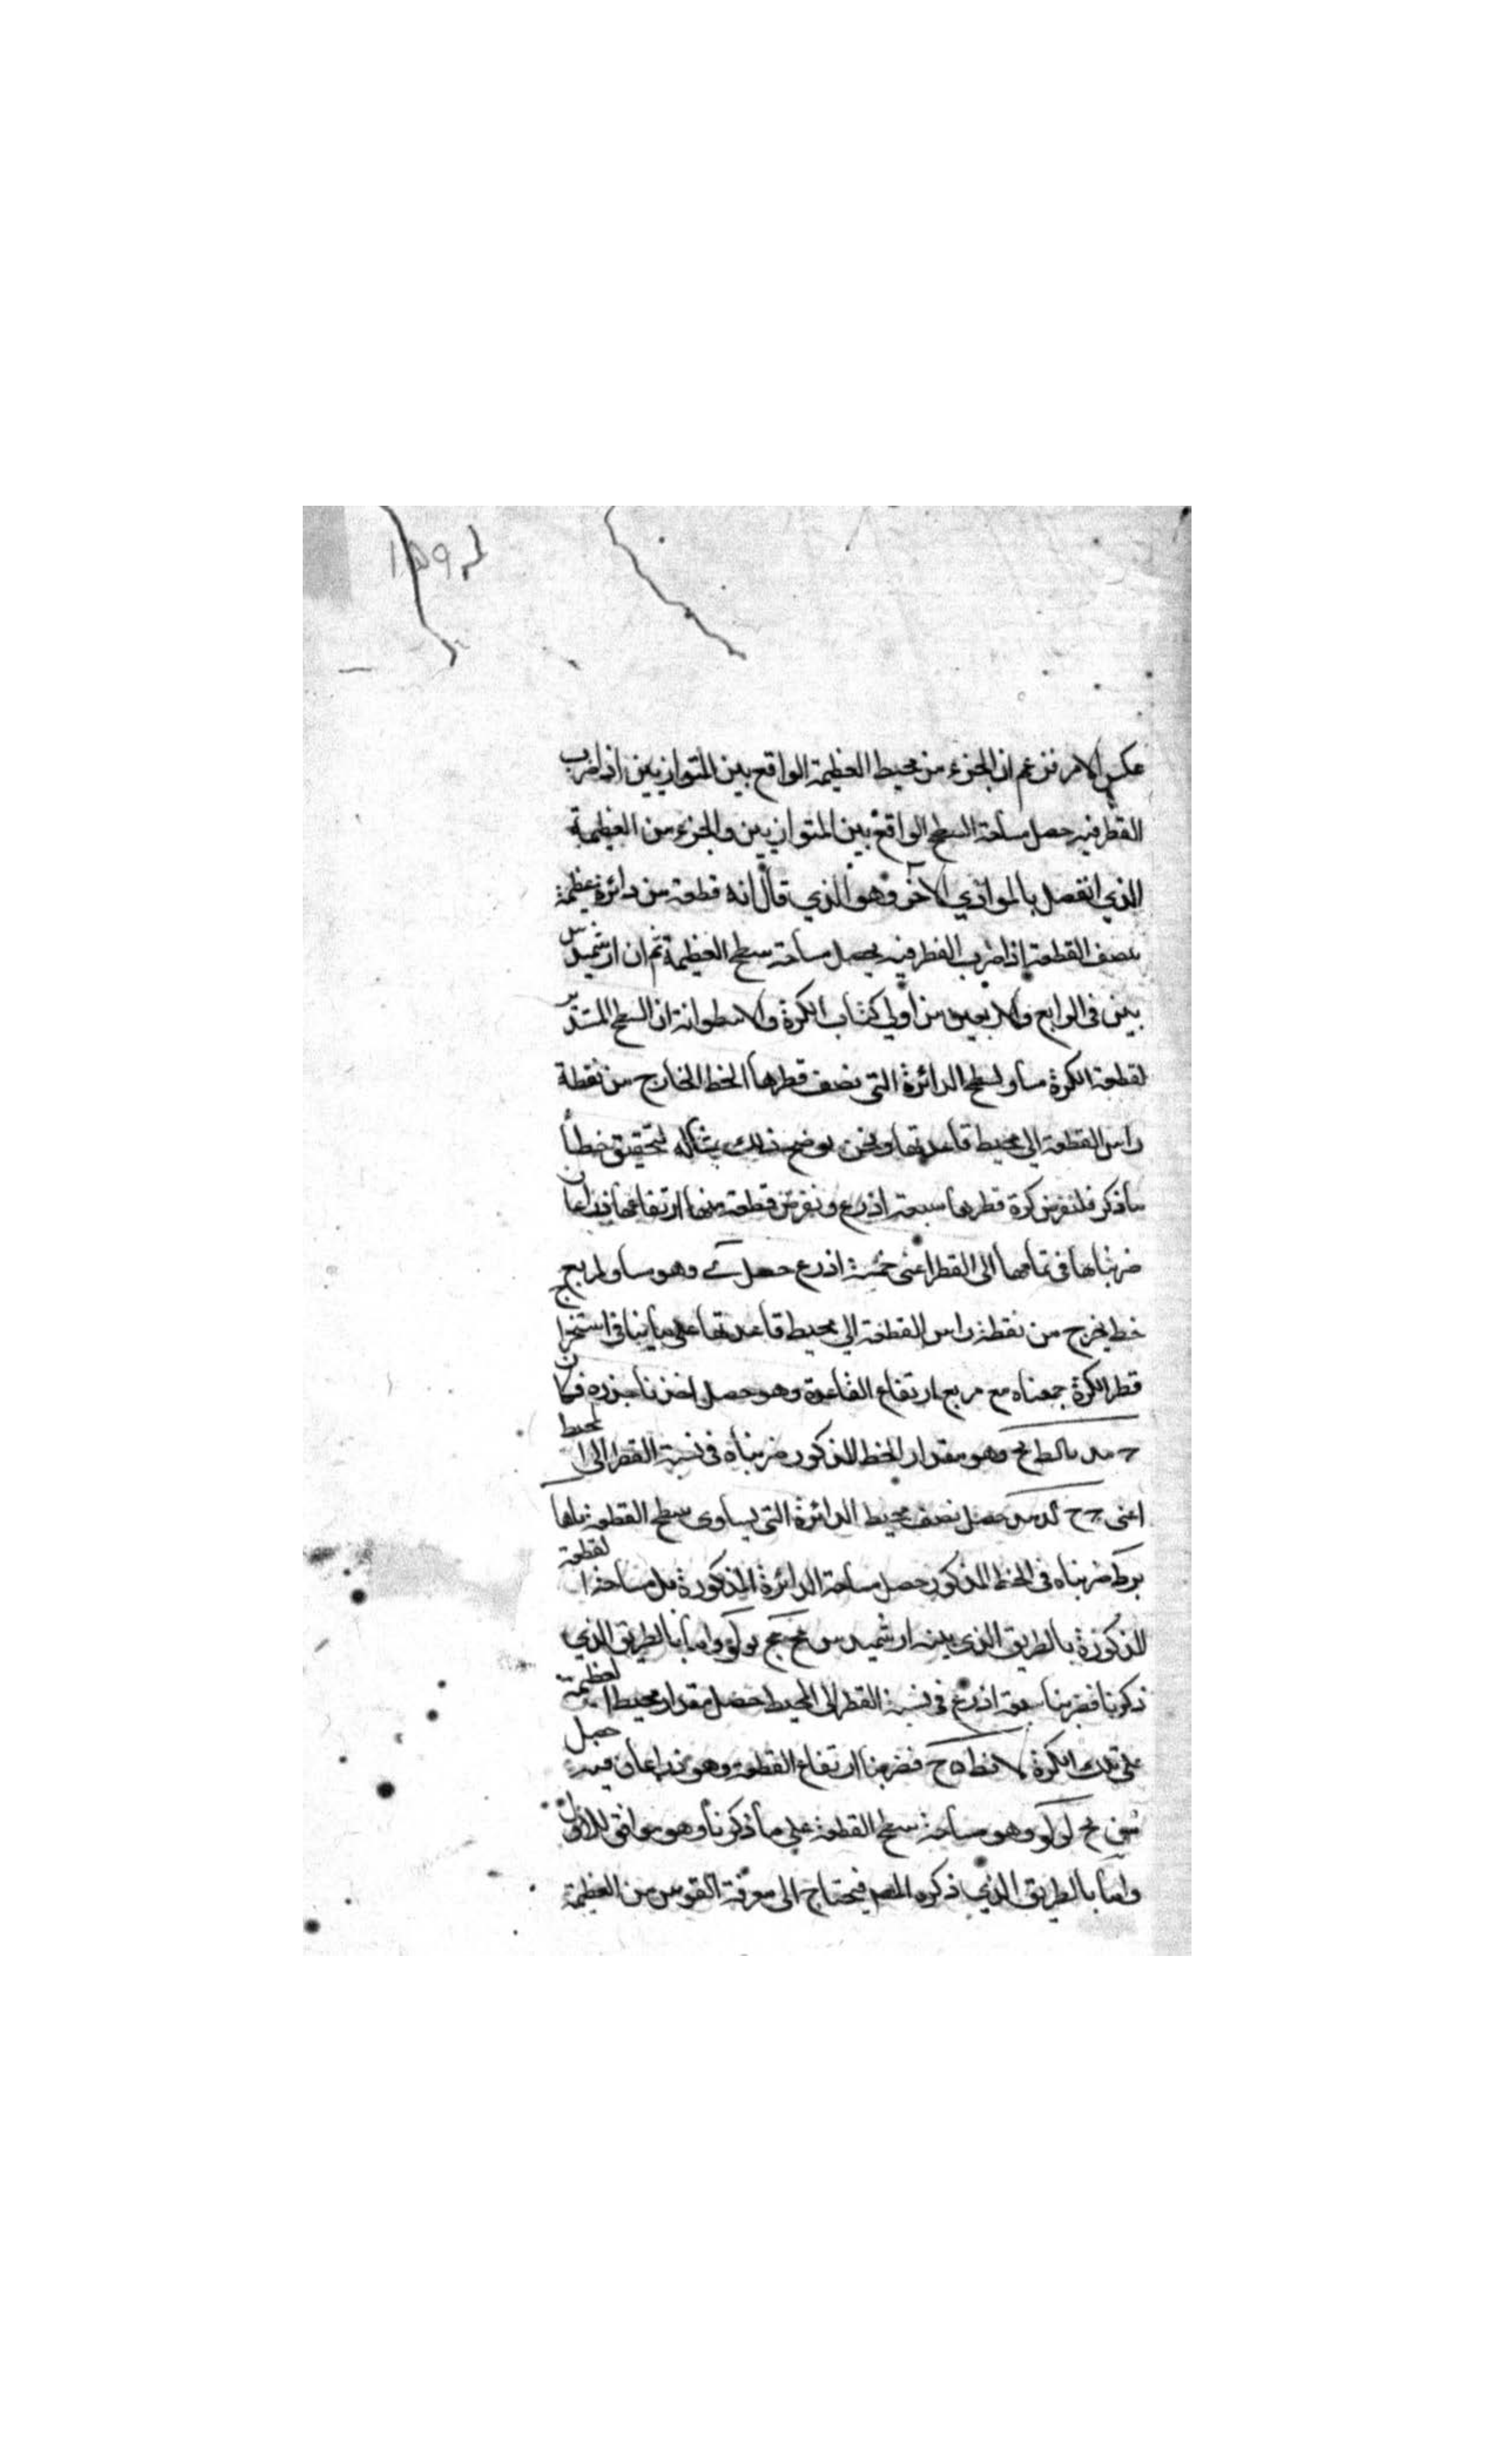 عكس الامر فزعم ان الجزء من محيط العظيمة الواقع بين المتوازيين اذا ضرب
القطر فيه حصل مساحة السطح الواقع بين المتوازيين والجزء من العظيمة
الذي انفصل بالموازي الآخر وهو الذي قال انه قطعة من دائرة عظيمة
نصف القطعة اذا ضرب القطر فيه يحصل مساحة سطح العظيمة ثم ان ارشميدس
بين في الرابع والاربعين من اولي كتاب الكرة والاسطوانة ان السطح المستدير
لقطعة الكرة مساو لسطح الدائرة التى نصف قطرها الخط الخارج من نقطة
راس القطعة الي محيط قاعدتها ونحن نوضح ذلك بمثال لتحقيق خطأ
ما ذكر فلنفرض كرة قطرها سبعة اذرع ونفرض قطعة منها ارتفاعها ذراعان
ضربناها فى تمامها الى القطر اعنى خمسة اذرع حصل ي وهو مساو لمربع
خط يخرج من نقطة راس القطعة الي محيط قاعدتها على ما بينا فى استخراج
قطر الكرة جمعناه مع مربع ارتفاع القاعدة وهو حصل اخذنا جذره فكان
وهو مقدار الخط المذكور ضربناه فى نسبة القطر الى المحيط
اعنى حصل نصف محيط الدائرة التى يساوى سطح القطعة
ضربناه فى الخط المذكور حصل مساحة الدائرة المذكورة بل مساحة القطعة
المذكورة بالطريق الذى بينه ارشميدس واما بالطريق الذي
ذكرنا فضربنا سبعة اذرع فى نسبة القطر الى المحيط حصل مقدار محيط العظيمة
على تلك الكرة فضربنا ارتفاع القطعة وهو ذراعان فيه حصل
وهو مساحة سطح القطعة على ما ذكرنا وهو موافق للاول
واما بالطريق الذي ذكره المص فيحتاج الى معرفة القوس من العظيمة